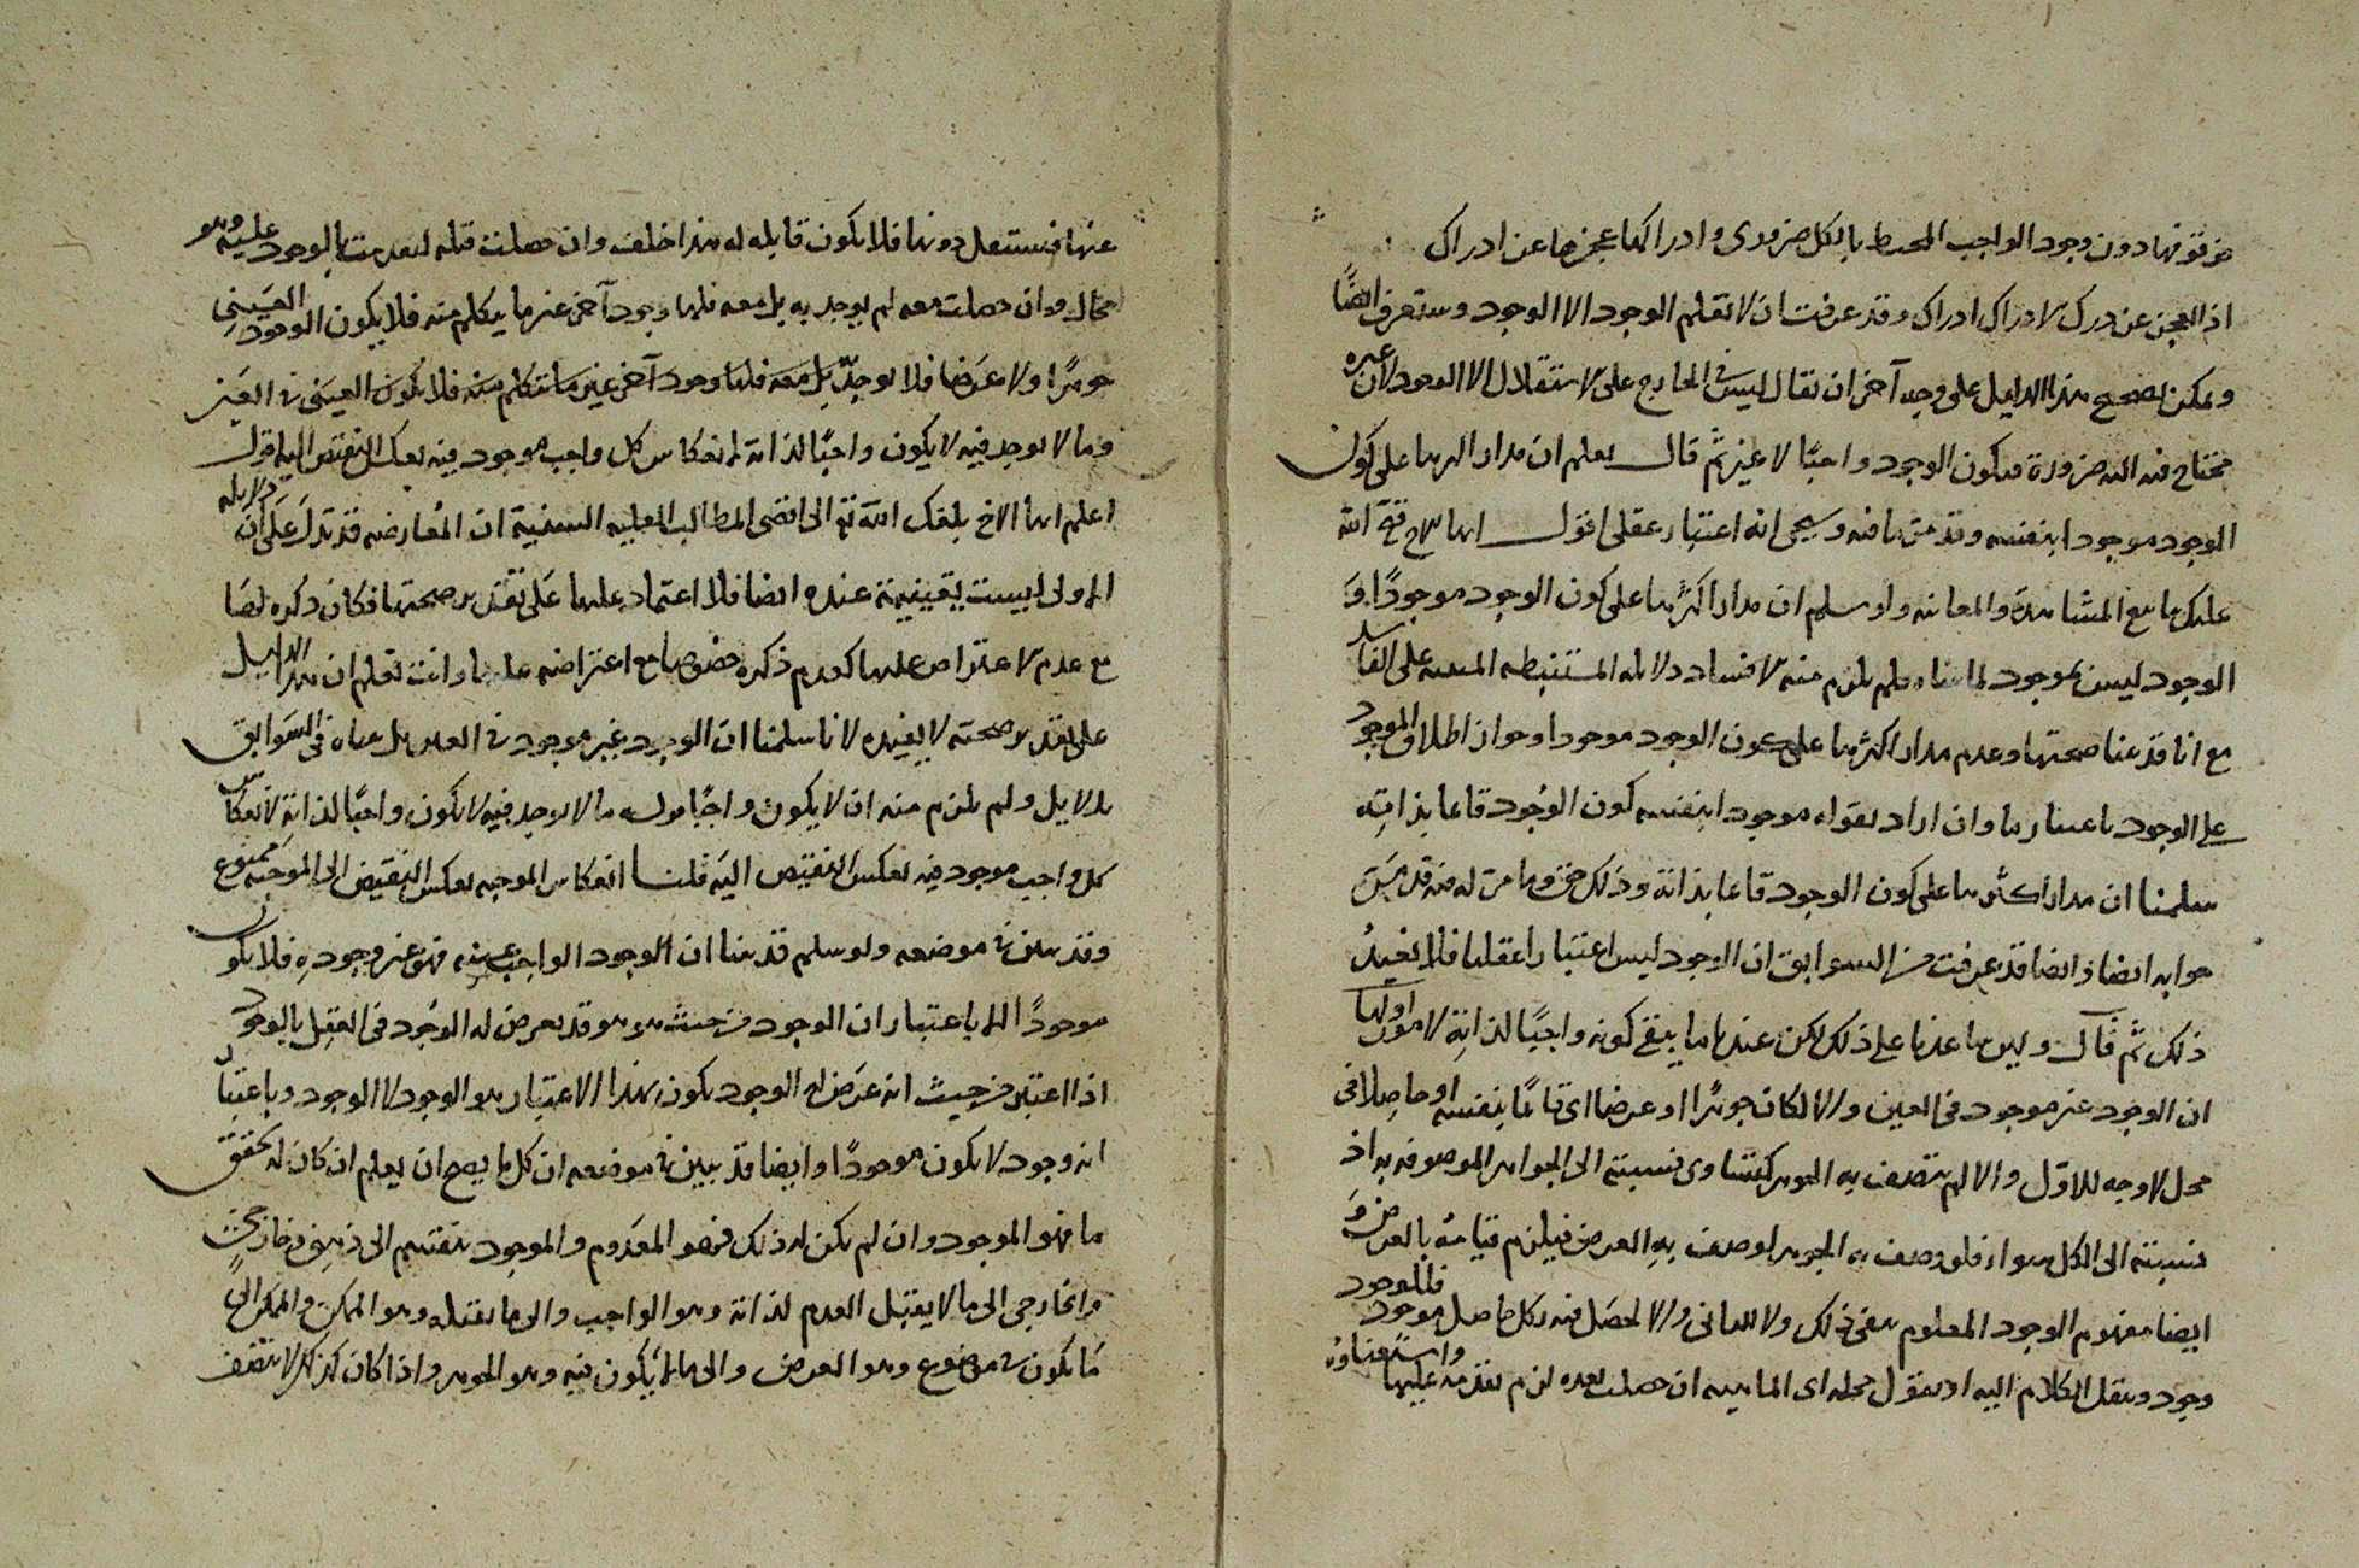 من فوقها دون وجود الواجب المحيط بالكل ضروري وادراكها عجزها عن ادراك
اذ العجز عن درك الادراك ادراك وقد عرفت ان لا تعلم الوجود الا الوجود وستعرف ايضًا
ويمكن تصحيح هذا الدليل على وجه آخر ان يقال ليس في الخارج على الاستقلال الا الوجود لان غيره
محتاج فيه اليه ضرورة فيكون الوجود واجبًا لا غير ثم قال يعلم ان مدار اكثرها على كون
الوجود موجودا بنفسه وقد مر ما فيه وسيجئ انه اعتبار عقلي اقول ايها الاخ فتح الله
عليك بامع المشاهدة والمعاينه ولو سلم ان مدار اكثرها على كون الوجود موجودًا وَ
الوجود ليس بموجود لما بيناه فلم يلزم منه الا فساد دلائله المستنبطه المبنيه على الفاسد
مع انا قد بينا صحتها وعدم مدار اكثرها على كون الوجود موجودا وجواز اطلاق الموجود
على الوجود باعتبار ما وان اراد بقوله موجود بنفسه كون الوجود قائما بذاته
سلمنا ان مدار اكثرها على كون الوجود قائما بذاته وذلك حق وما مر له فيه قد مَرَّ
جوابه ايضا وايضا قد عرفت من السوابق ان الوجود ليس اعتبارا عقليا فلا يفيدُ
ذلك ثم قال وليس ما عندنا على ذلك لكن عندنا ما ينفي كونه واجبًا لذاته لامور اولها
ان الوجود غير موجود في العين والا لكان جوهرًا او عرضا اى قائمًا بنفسه او حاصلا في
محل لا وجه للاول والا لم يتصف به الجوهر كيتساوى نسبته الى الجواهر الموصوفه به اذ
نسبته الى الكل سواء فلو وصف به الجوهر لوصف به العرض فيلزم قيامه بالعرض وَ
ايضا مفهوم الوجود المعلوم ينفي ذلك ولا للثاني والا لحصل فيه وكل حاصل موجود فللوجود
وجود وينقل الكلام اليه او نقول محله اى الماهيه ان حصلت بعده لزم تقدمه عليها واستغناؤه
عنها فتستعمل دونها فلا يكون قابله له هذا خلف وان حصلت قبله لتقدمت بالوجود عليه وهو
محال وان حصلت معه لم يوجد به بل معه فلها وجود آخر غير ما يتكلم منه فلا يكون الوجود العيني
جوهرًا ولا عرضا فلا يوجد بل معه فلها وجود آخر غير ما نتكلم منه فلا يكون العيني في العين
وما لا يوجد فيه لا يكون واجبًا لذاته لانعكاس كل واجب موجود فيه بعكس النقيض اليه اقول
اعلم ايها الاخ بلغك الله تعالى اقصى المطالب العليه السنية ان المعارضه قد تدل على ان دلايله
الاولى ليست يقينية عنده ايضا فلا اعتماد عليها على تقدير صحتها فكان ذكره لها
مع عدم الاعتراض عليها كعدم ذكره خصوصا مع اعتراضه عليها وانت تعلم ان هذا الدليل
على تقدير صحته لا يفيده لانا سلمنا ان الوجود غير موجود في العين بل بيناه في السوابق
بدلايل ولم يلزم منه ان لا يكون واجبًا قوله ما لا يوجد فيه لا يكون واجبًا لذاته لانعكاس
كل واجب موجود فيه بعكس النقيض اليه قلنا انعكاس الموجبه بعكس النقيض الى الموجبه ممنوع
وقد بين في موضعه ولو سلم قد بينا ان الوجود الواجب عينه فهو عين وجوده فلا يكون
موجودًا الا باعتبار ان الوجود من حيث هو هو قد يعرض له الوجود في العقل بالوجود
اذا اعتبر من حيث انه عرض له الوجود يكون بهذا الاعتبار هو الوجود لا الوجود وباعتبار
انه وجود لا يكون موجودًا وايضا قد بين في موضعه ان كل ما يصح ان يعلم ان كان له تحقق
ما فهو الموجود وان لم يكن له ذلك فهو المعدوم والموجود ينقسم الى ذهني وخارجي
والخارجي الى ما لا يقبل العدم لذاته وهو الواجب والى ما يقبله وهو الممكن والممكن الى
ما يكون في موضوع وهو العرض والى ما لا يكون فيه وهو الجوهر واذا كان كذلك لا يتصف